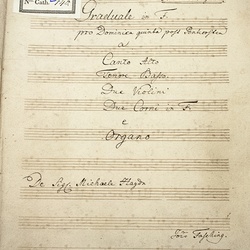 Graduale in F.
pro Dominica quinta post Penthecosten
a
Canto Alto
Tenore Basso.
Due Violini
Due Corni in F.
e
Organo
De Sig. Michaele Haydn